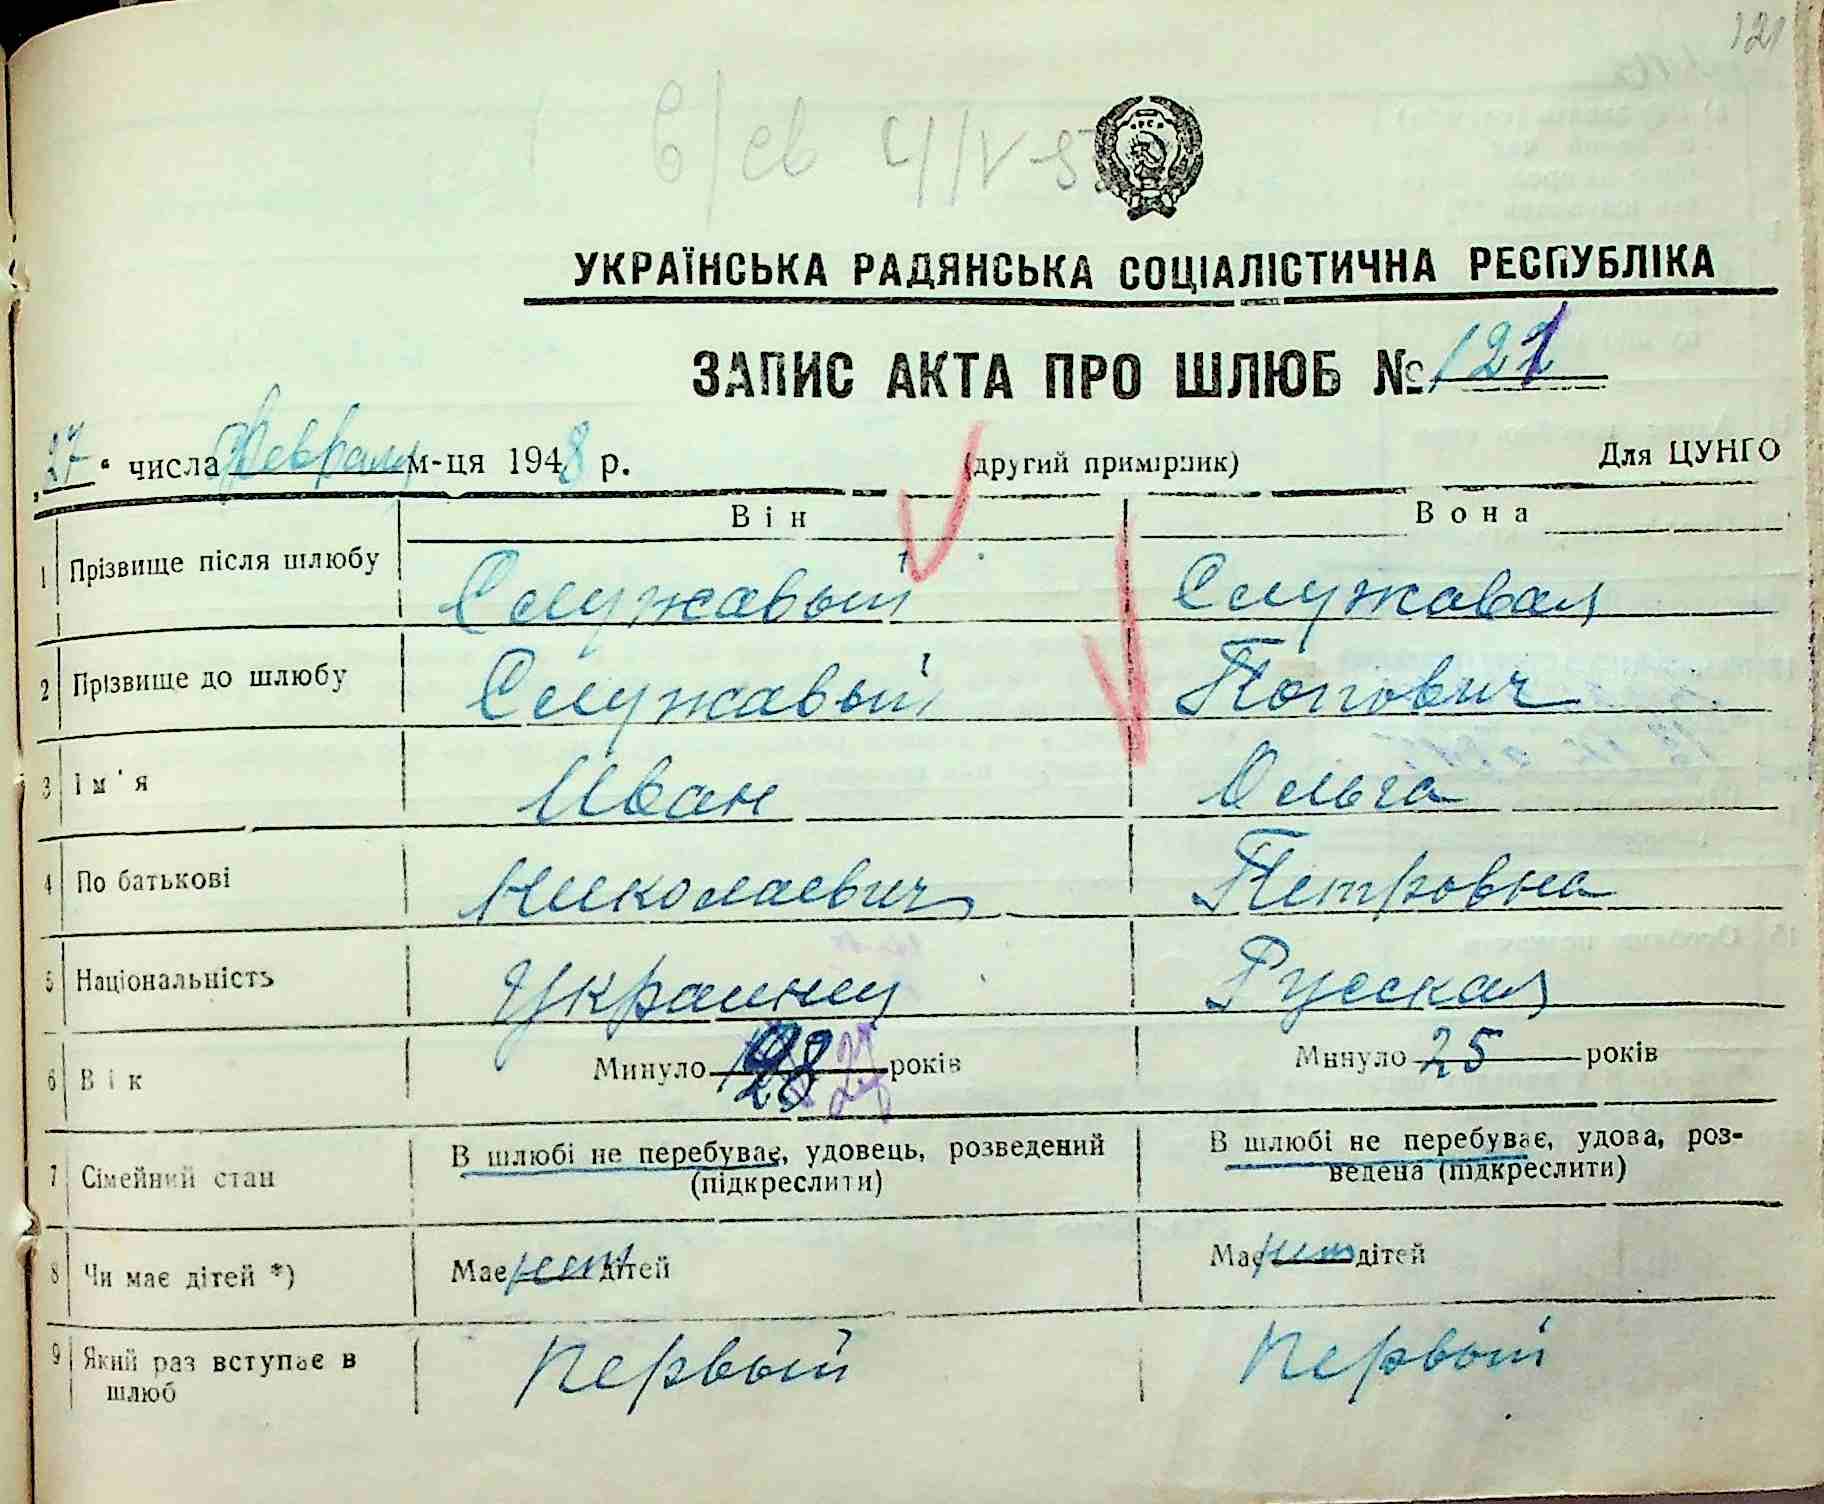 121
УКРАЇНСЬКА РАДЯНСЬКА СОЦІАЛІСТИЧНА РЕСПУБЛІКА
ЗАПИС АКТА ПРО ШЛЮБ № 121
„27“ числа Февраля м-ця 1948 р. (другий примірник) Для ЦУНГО
Він Вона
1 Прізвище після шлюбу Служавый Служавая
2 Прізвище до шлюбу Служавый Попович
3 Ім'я Иван Ольга
4 По батькові Николаевич Петровна
5 Національність Украинец Русская
6 Вік Минуло 28 років Минуло 25 років
7 Сімейний стан В шлюбі не перебуває, удовець, розведений (підкреслити) В шлюбі не перебуває, удова, роз-
ведена (підкреслити)
8 Чи має дітей *) Має нет дітей Має нет дітей
9 Який раз вступає в Первый Первый
шлюб